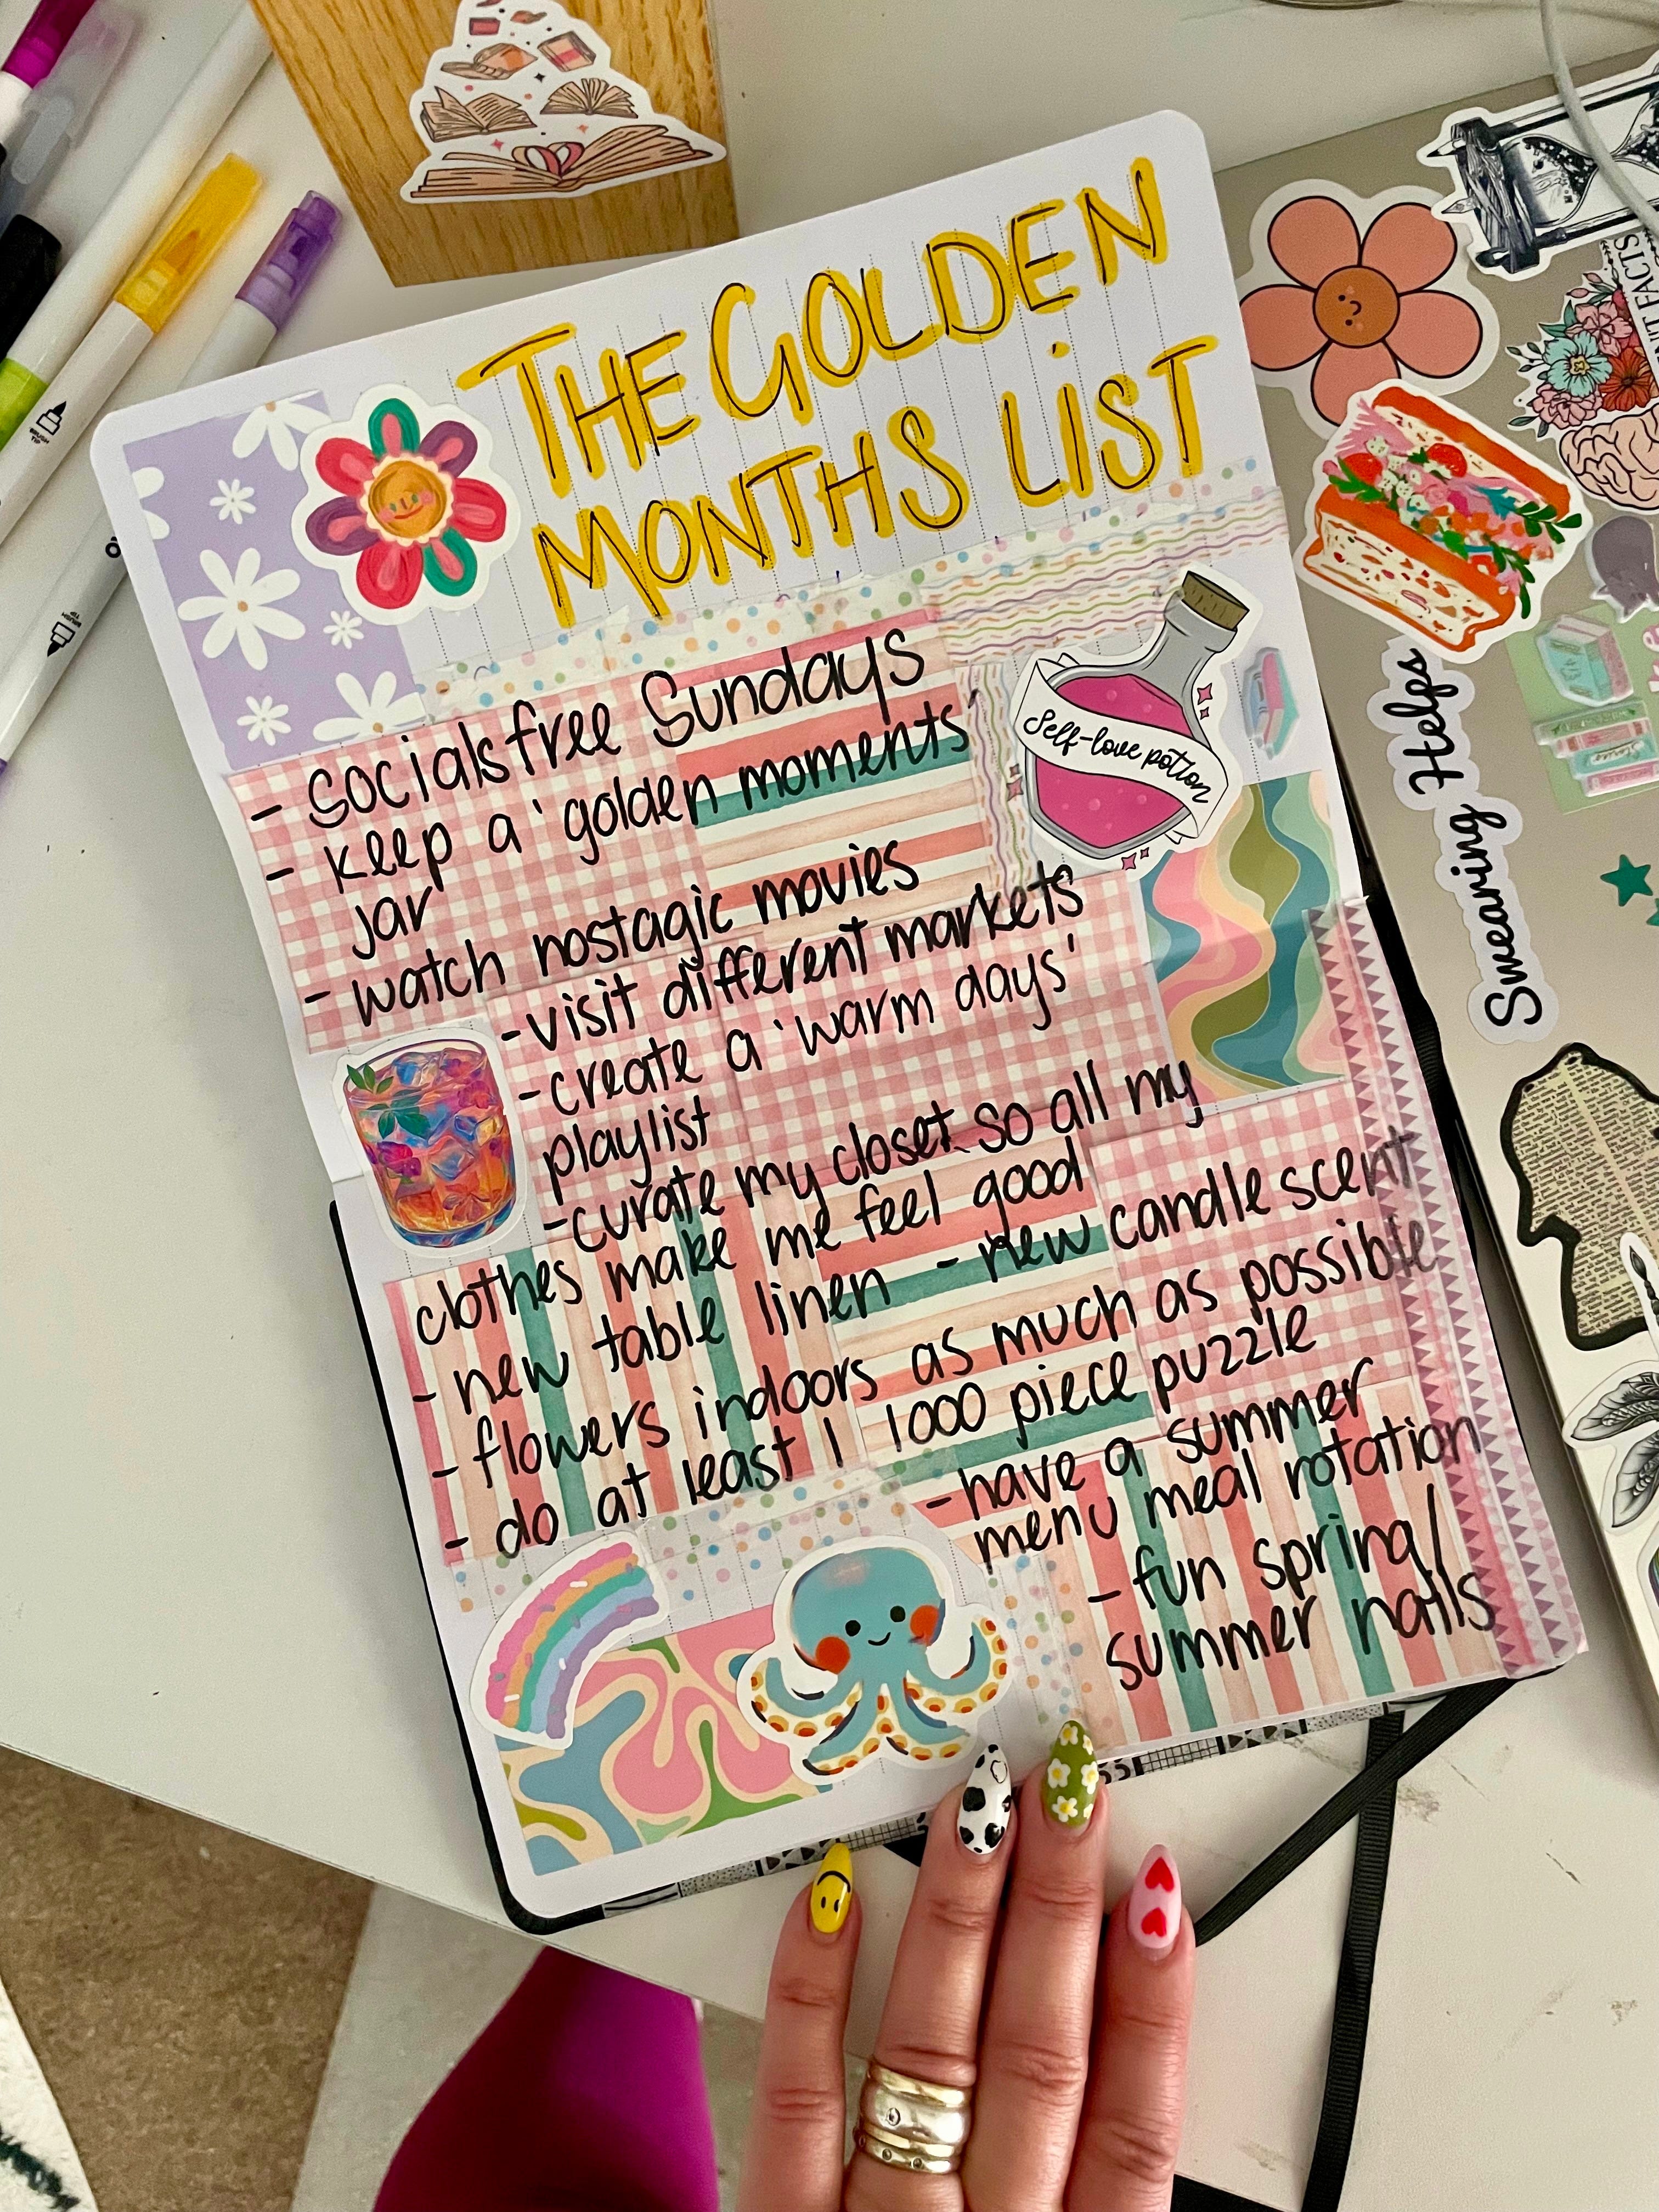 THE GOLDEN
MONTHS LIST
- socials free Sundays
- keep a 'golden moments'
jar
- watch nostagic movies
- visit different markets
- create a 'warm days'
playlist
- curate my closet so all my
clothes make me feel good
- new table linen - new candle scent
- flowers indoors as much as possible
- do at least 1 1000 piece puzzle
- have a summer
menu meal rotation
- fun spring/
summer nails
Self-love potion
Swearing Helps
FACTS
BRUSH
TIP